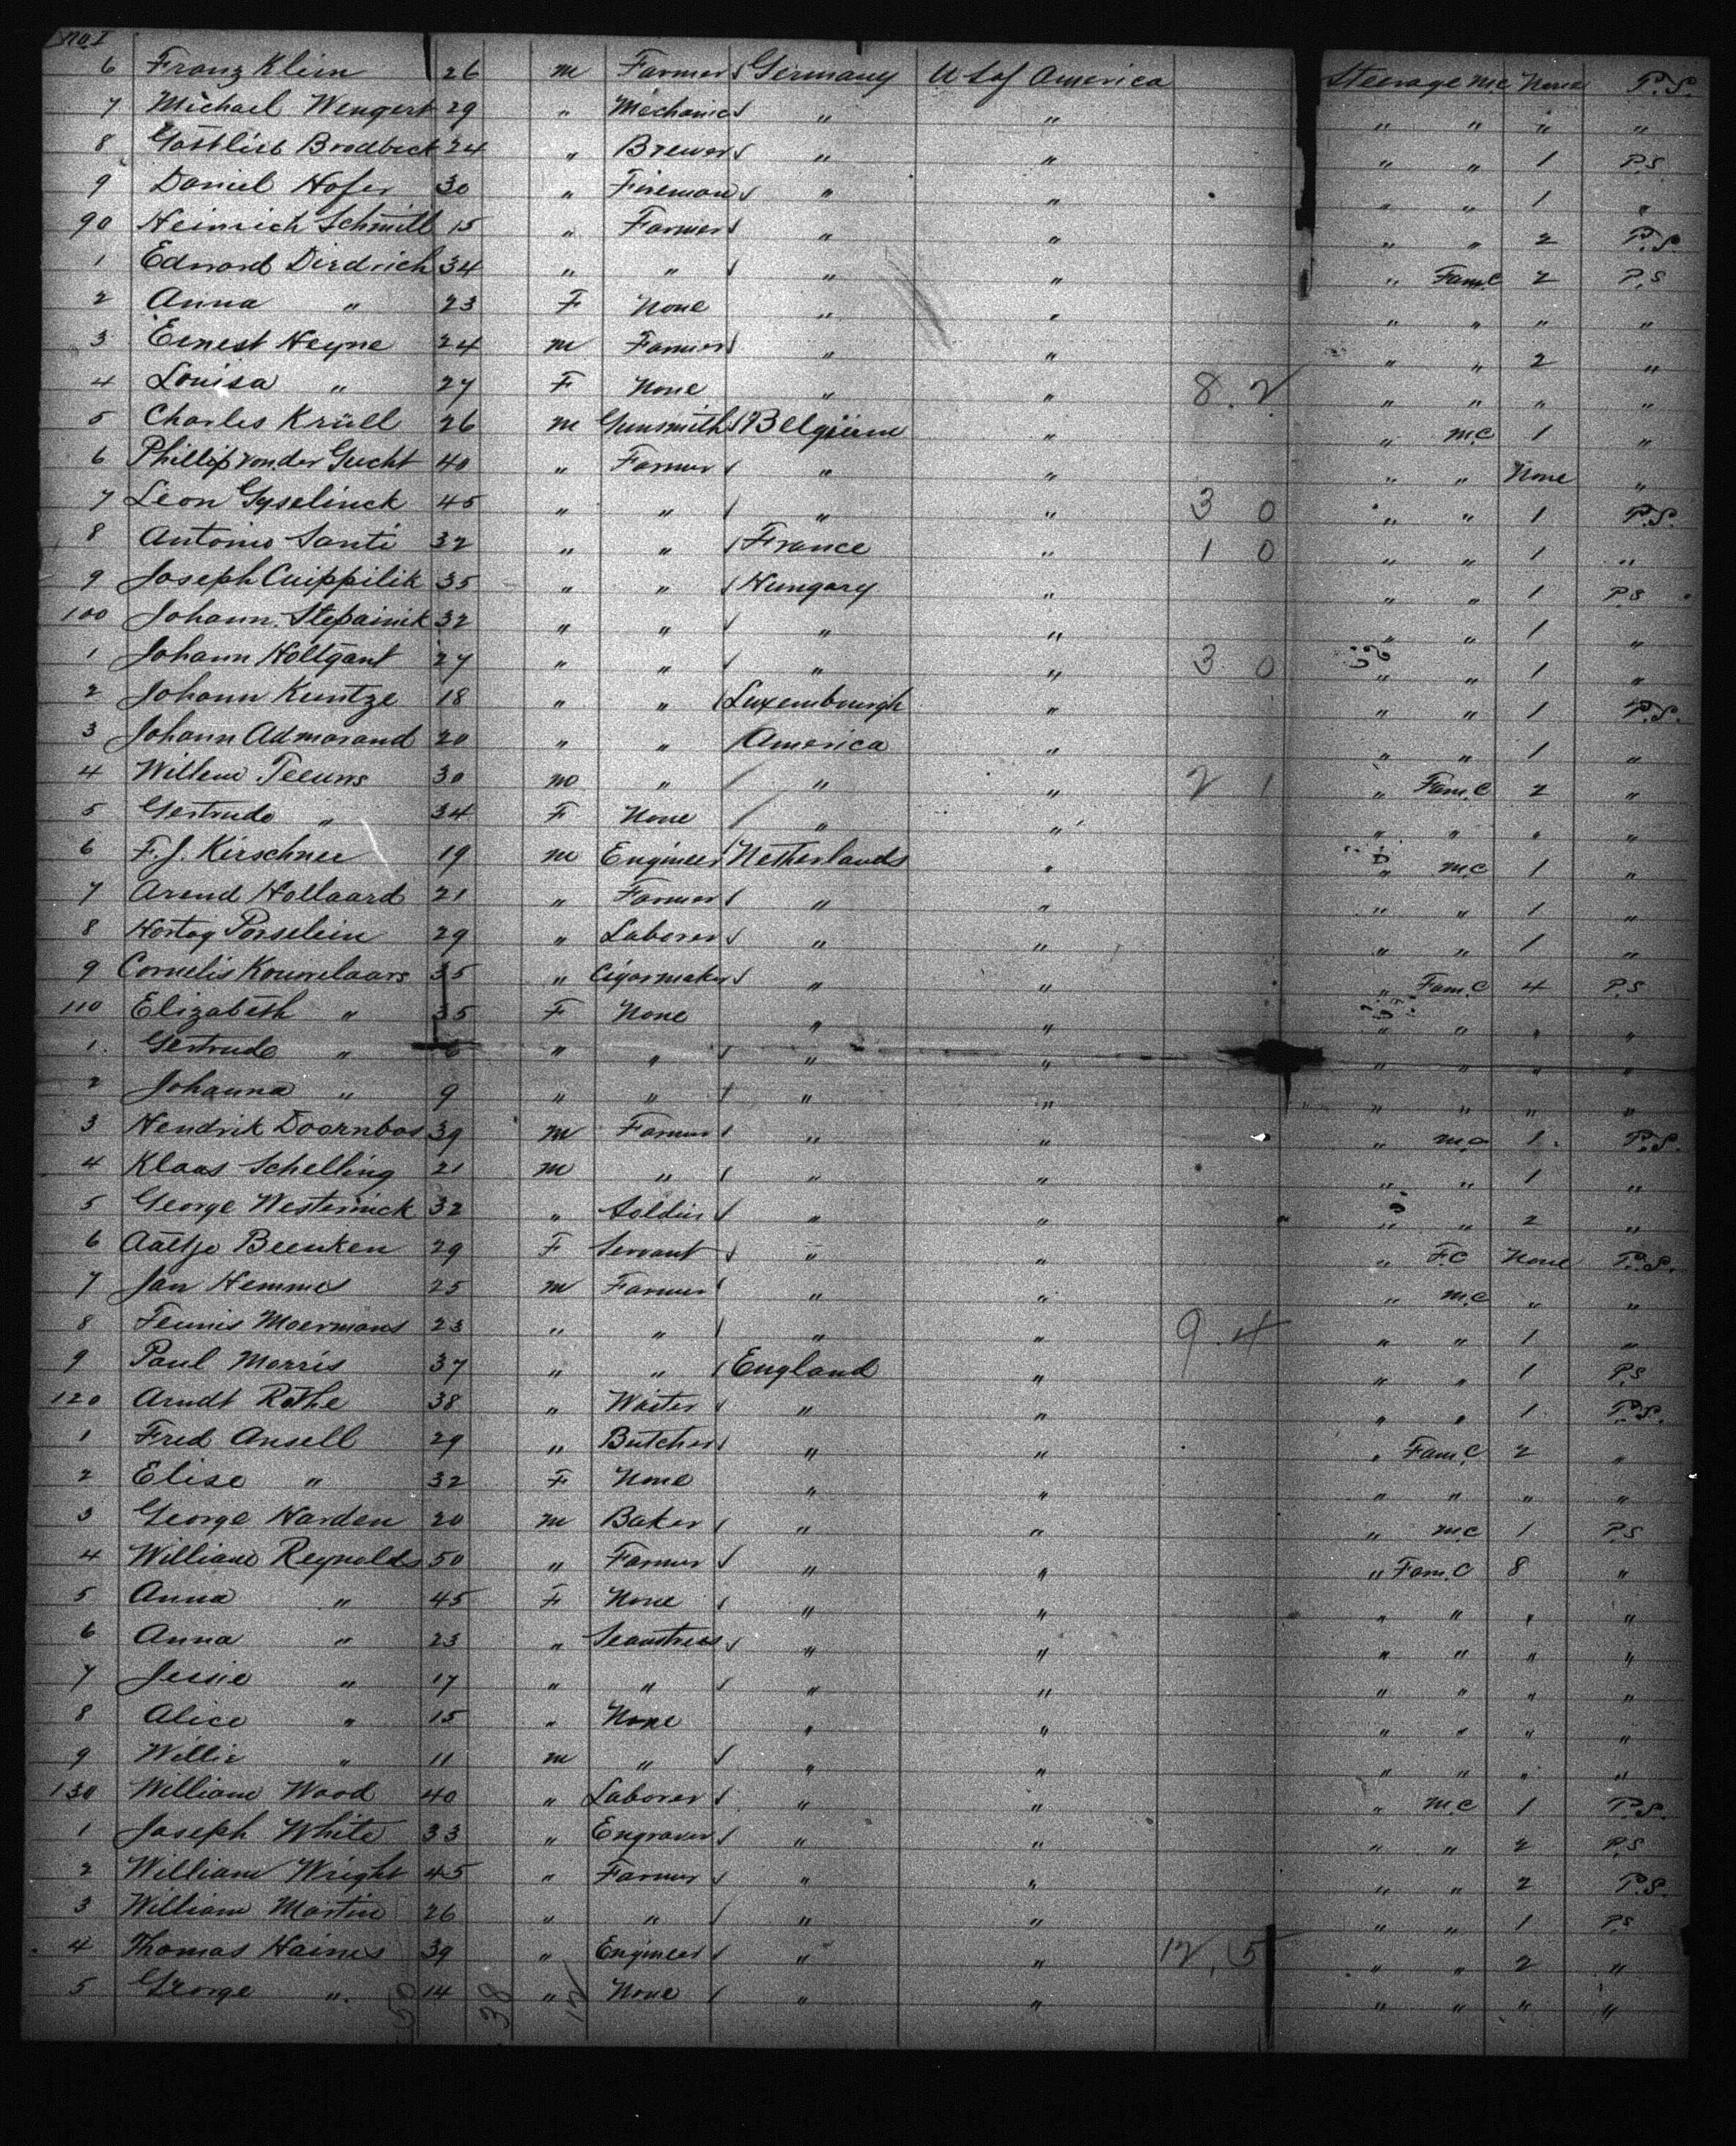 No. I
6 Franz Klein 26 m Farmer Germany U S of America Steerage m.c None P.S.
7 Michael Wengert 29 " Mechanic " " " " " "
8 Gottlieb Brodbeck 24 " Brewer " " " " 1 P.S
9 Daniel Hofer 30 " Fireman " " " " 1 "
90 Heinrich Schmitt 15 " Farmer " " " " 2 P.S.
1 Edward Dirdrich 34 " " " " " Fam.C 2 P.S
2 Anna " 23 F None " " " " " "
3 Ernest Heyne 24 m Farmer " " " " 2 "
4 Louisa " 27 F None " " 8. 2. " " " "
5 Charles Krüll 26 m Gunsmith Belgium " " m.c 1 "
6 Phillip von der Gucht 40 " Farmer " " " " None "
7 Leon Gyselinck 45 " " " " 3 0 " " 1 P.S.
8 Antonio Santi 32 " " France " 1 0 " " 1 "
9 Joseph Cuippilik 35 " " Hungary " " " 1 P.S
100 Johann Stepainik 32 " " " " " " 1 "
1 Johann Holtgant 27 " " " " 3 0 " " 1 "
2 Johann Kuntze 18 " " Luxembourgh " " " 1 P.S.
3 Johann Admorand 20 " " America " " " 1 "
4 Willem Teeuws 30 m " " " 2 1 " Fam.C 2 "
5 Gertrude " 34 F None " " " " " "
6 F. J. Kirschner 19 m Engineer Netherlands " " m.c 1 "
7 Arend Hollaard 21 " Farmer " " " " 1 "
8 Hartog Porselein 29 " Laborer " " " " 1 "
9 Cornelis Kouwelaars 35 " Cigarmaker " " " Fam.C 4 P.S
110 Elizabeth " 35 F None " " " " " "
1. Gertrude " " " " " " " " "
2 Johanna " 9 " " " " " " " "
3 Hendrik Doornbos 39 m Farmer " " " m.c 1. P.S.
4 Klaas Schelling 21 m " " " " " 1 "
5 George Westernick 32 " Soldier " " " " 2 "
6 Aaltje Beenken 29 F Servant " " " F.C None P.S.
7 Jan Hemmes 25 m Farmer " " " m.c " "
8 Teunis Moermans 23 " " " " 9. 4 " " 1 "
9 Paul Morris 37 " " England " " " 1 P.S
120 Arndt Rothe 38 " Waiter " " " " 1. P.S.
1 Fred Ansell 29 " Butcher " " " Fam.C 2 "
2 Elise " 32 F None " " " " " "
3 George Harden 20 m Baker " " " m.c 1 P.S
4 William Reynolds 50 " Farmer " " " Fam.C 8 "
5 Anna " 45 F None " " " " " "
6 Anna " 23 " Seamstress " " " " " "
7 Jessie " 17 " " " " " " " "
8 Alice " 15 " None " " " " " "
9 Willie " 11 m " " " " " " "
130 William Wood 40 " Laborer " " " m.c 1 P.S.
1 Joseph White 33 " Engraver " " " " 2 P.S
2 William Wright 45 " Farmer " " " " 2 P.S.
3 William Martin 26 " " " " " " 1 P.S
4 Thomas Haines 39 " Engineer " " 12. 5 " " 2 "
5 George " 14 " None " " " " " "
50 38 12